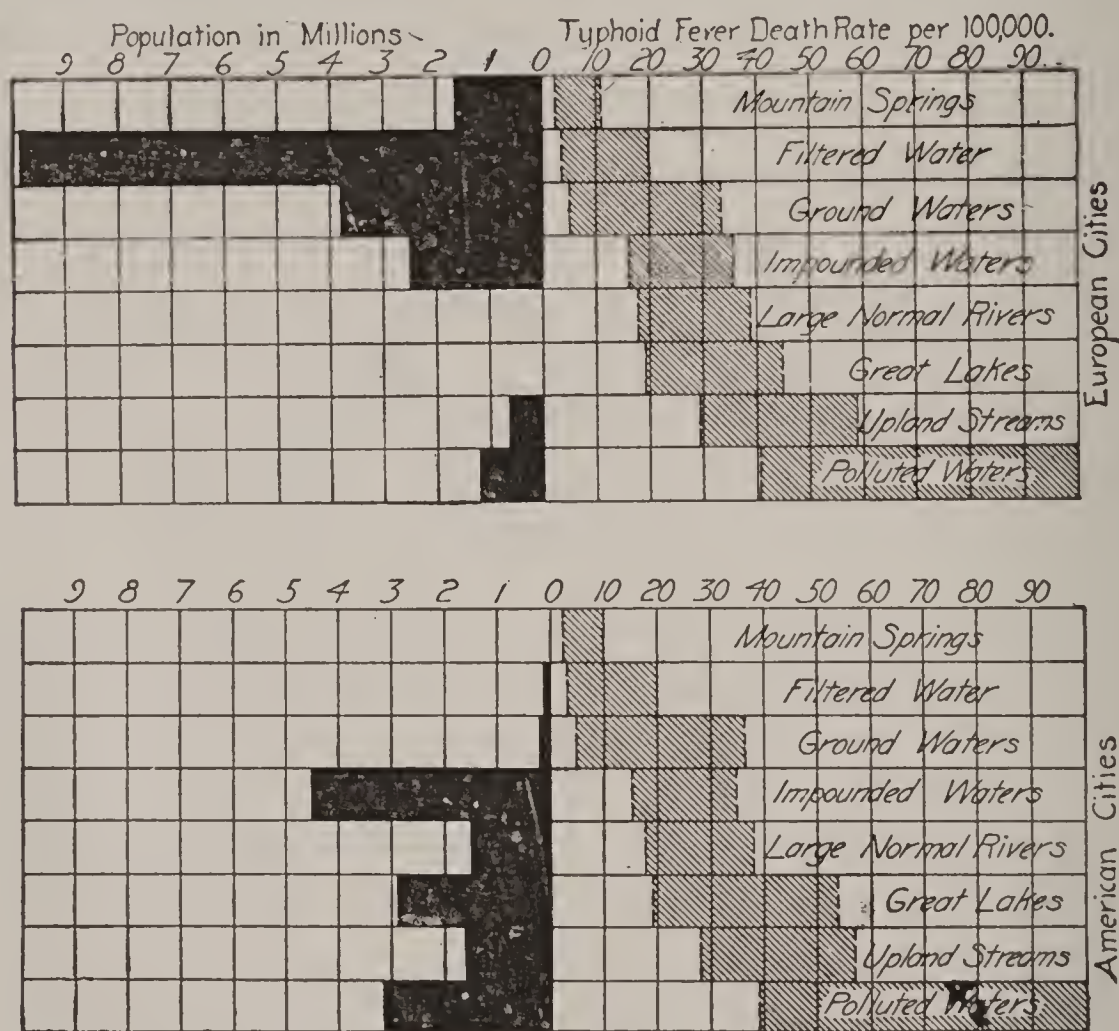 Population in Millions
Typhoid Fever Death Rate per 100,000.
9 8 7 6 5 4 3 2 1 0 10 20 30 40 50 60 70 80 90
Mountain Springs
Filtered Water
Ground Waters
Impounded Waters
Large Normal Rivers
Great Lakes
Upland Streams
Polluted Waters
European Cities
9 8 7 6 5 4 3 2 1 0 10 20 30 40 50 60 70 80 90
Mountain Springs
Filtered Water
Ground Waters
Impounded Waters
Large Normal Rivers
Great Lakes
Upland Streams
Polluted Waters
American Cities